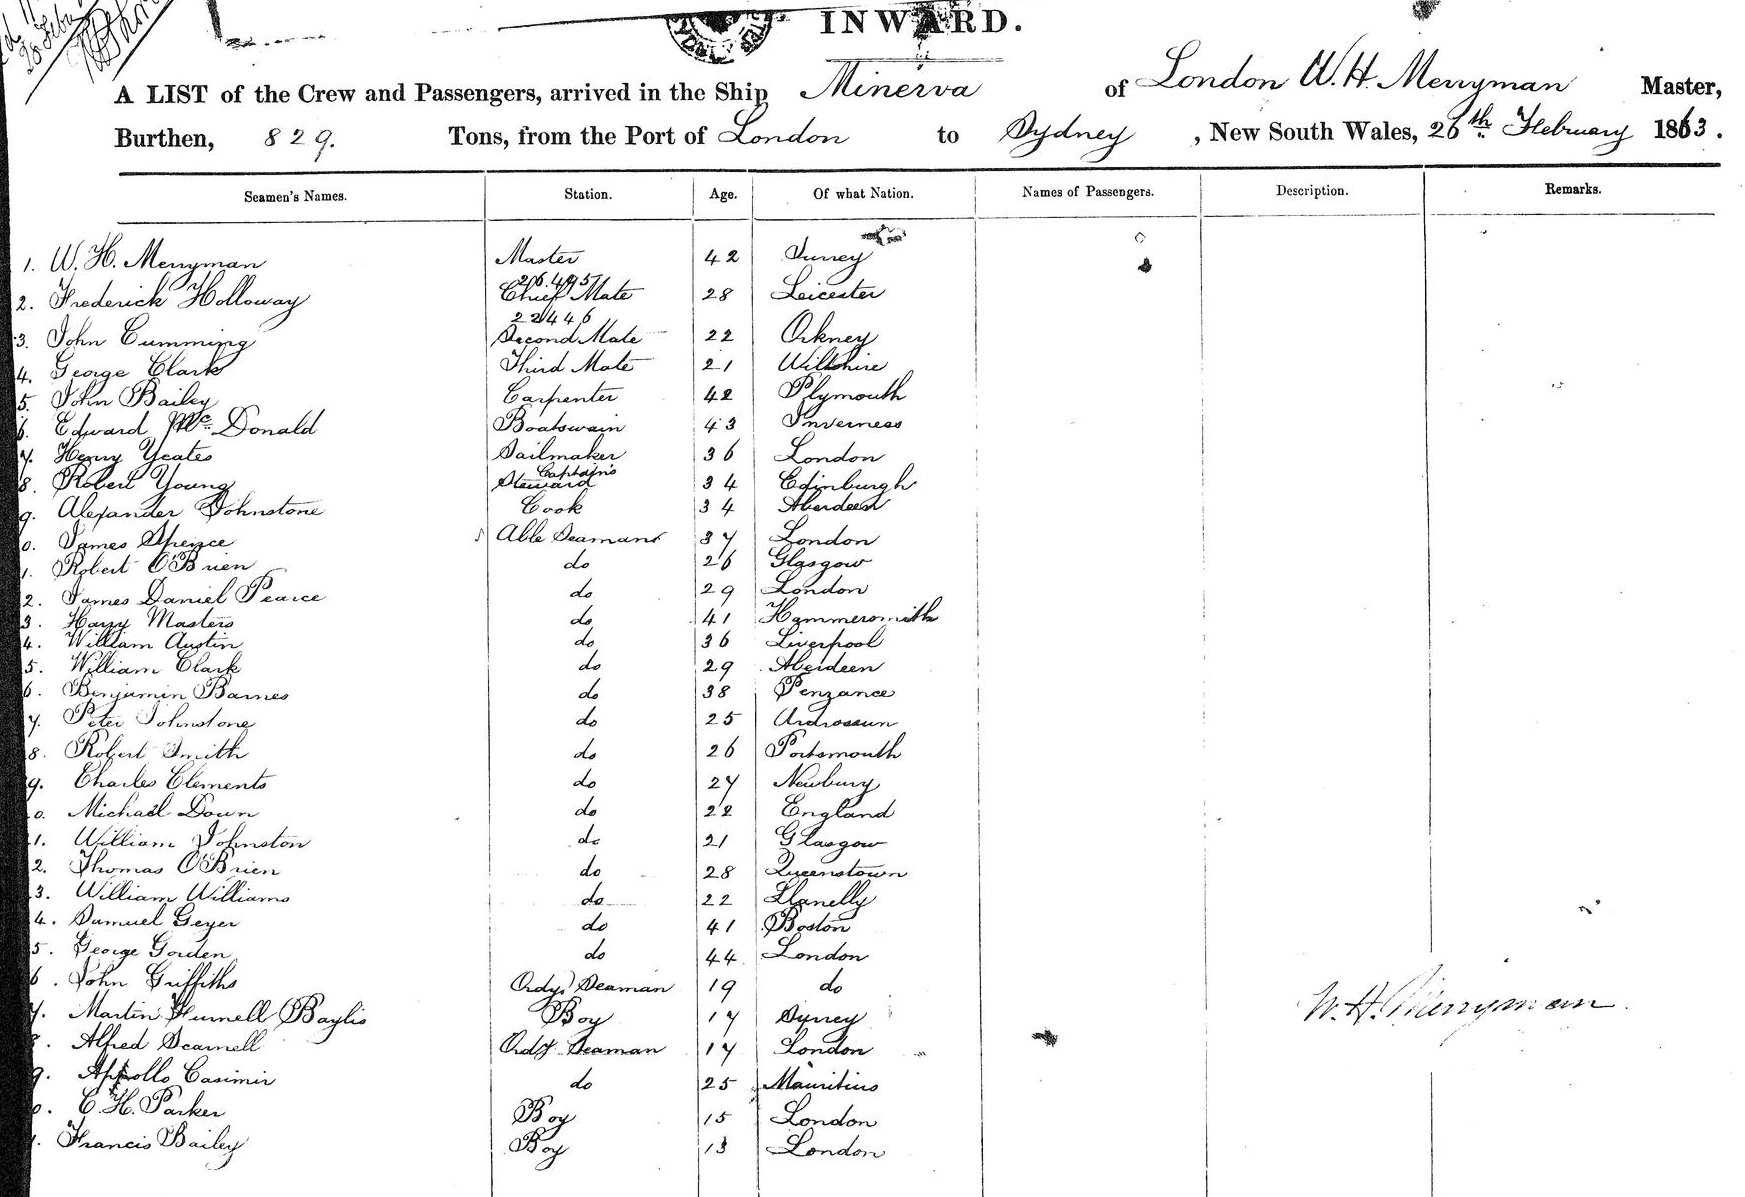 28 Feb
INWARD.
A LIST of the Crew and Passengers, arrived in the Ship Minerva of London W. H. Merryman Master,
Burthen, 829. Tons, from the Port of London to Sydney, New South Wales, 26th February 1863.
Seamen's Names. Station. Age. Of what Nation. Names of Passengers. Description. Remarks.
1. W. H. Merryman Master 42 Surrey
26.495
2. Frederick Holloway Chief Mate 28 Leicester
22446
3. John Cumming Second Mate 22 Orkney
4. George Clark Third Mate 21 Wiltshire
5. John Bailey Carpenter 42 Plymouth
6. Edward McDonald Boatswain 43 Inverness
7. Henry Yeates Sailmaker 36 London
8. Robert Young Captain's Steward 34 Edinburgh
9. Alexander Johnstone Cook 34 Aberdeen
0. James Spence Able Seamans 37 London
1. Robert O'Brien do 26 Glasgow
2. James Daniel Pearce do 29 London
3. Harry Masters do 41 Hammersmith
4. William Austin do 36 Liverpool
5. William Clark do 29 Aberdeen
6. Benjamin Barnes do 38 Penzance
7. Peter Johnstone do 25 Ardrossan
8. Robert Smith do 26 Portsmouth
9. Charles Clements do 27 Newbury
0. Michael Down do 22 England
1. William Johnston do 21 Glasgow
2. Thomas O'Brien do 28 Queenstown
3. William Williams do 22 Llanelly
4. Samuel Geyer do 41 Boston
5. George Gorden do 44 London
6. John Griffiths Ordy. Seaman 19 do
7. Martin Furnell Baylis Boy 17 Surrey
W. H. Merryman.
8. Alfred Scarnell Ordy Seaman 17 London
9. Appollo Casimir do 25 Mauritius
0. C. H. Parker Boy 15 London
1. Francis Bailey Boy 13 London